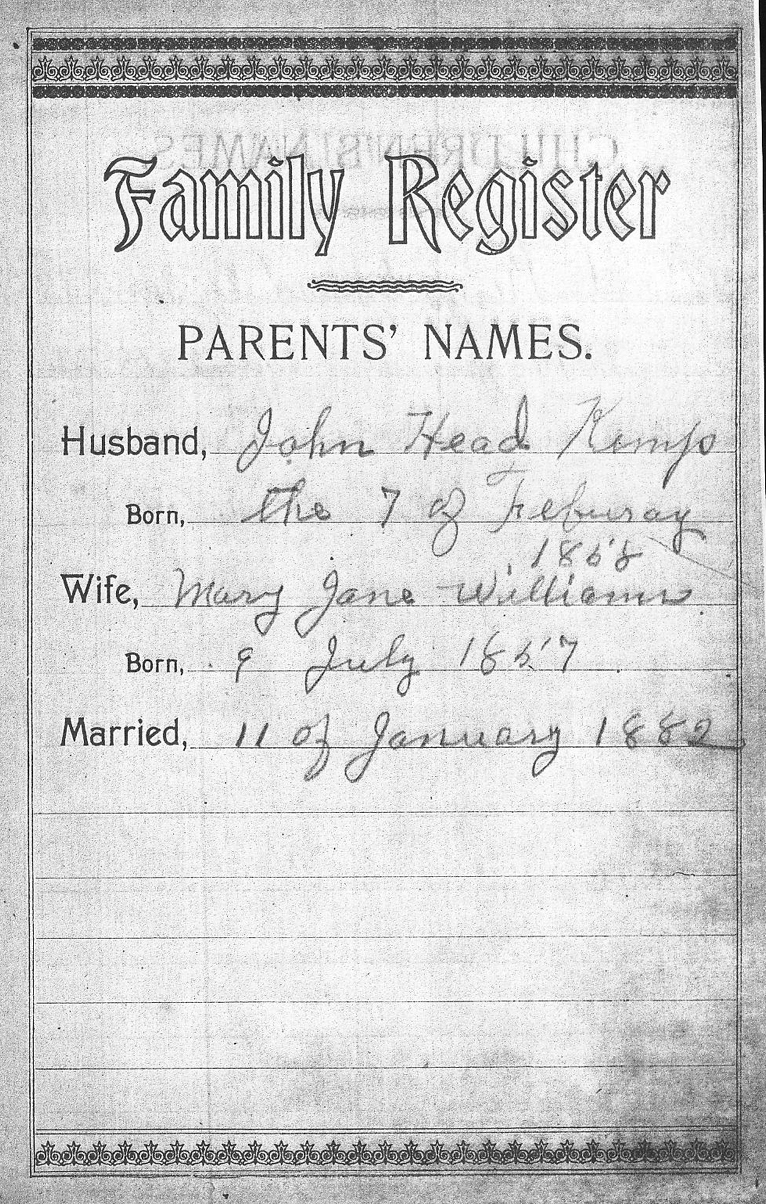 Family Register
PARENTS' NAMES.
Husband, John Head Kemp
Born, the 7 of Feburay
1858
Wife, Mary Jane Williams
Born, 9 July 1857
Married, 11 of January 1882